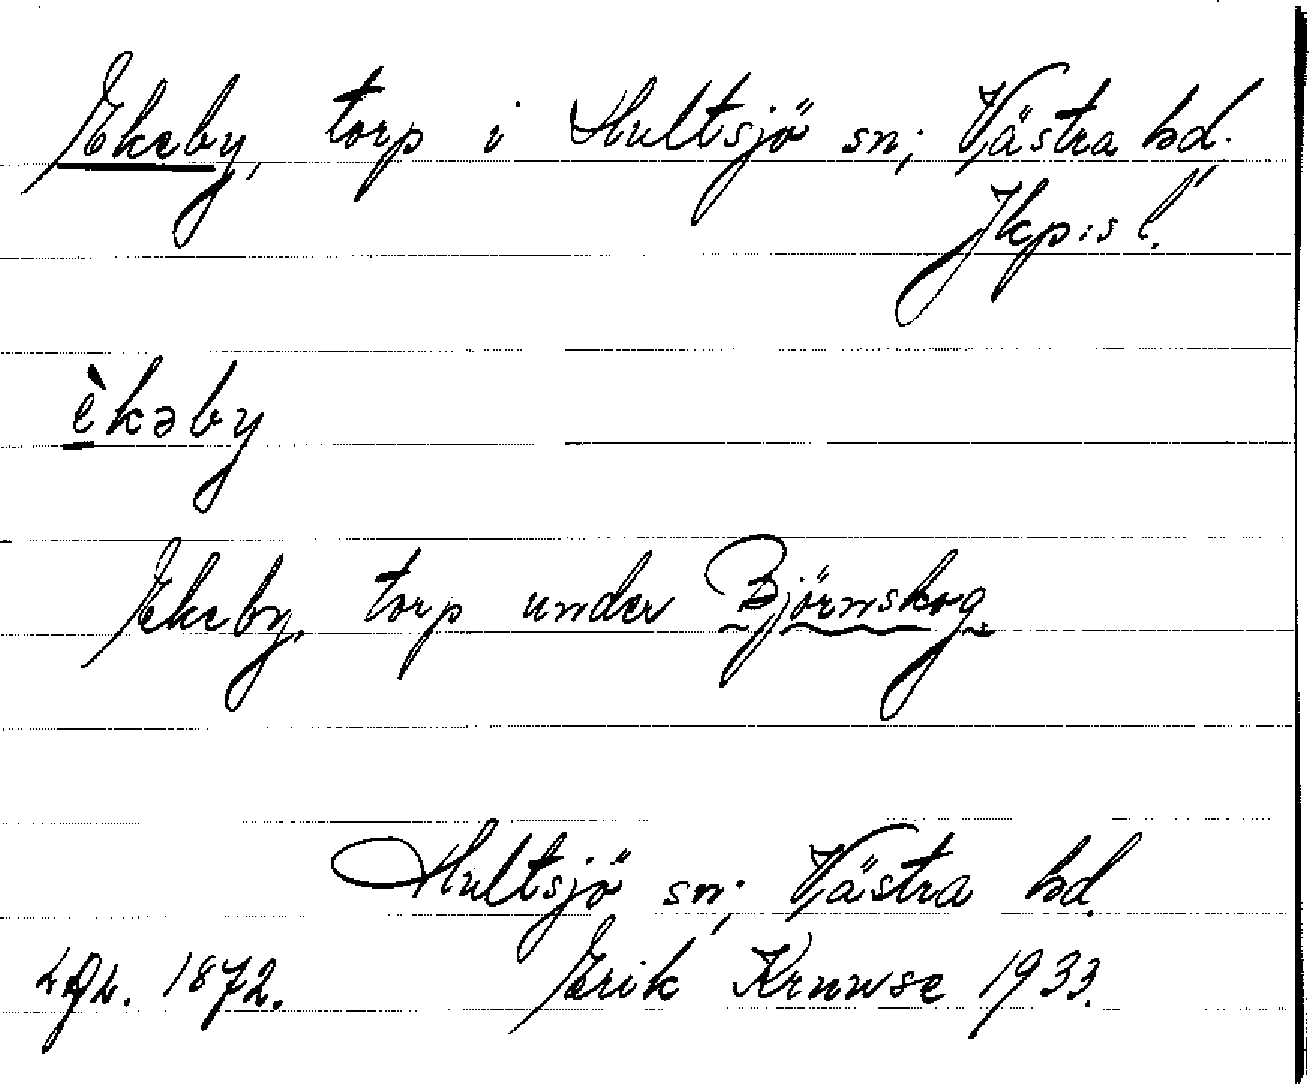 Ekeby, torp i Hultsjö sn; Västra hd.
Jkp:s l.
èkəby
Ekeby, torp under Björnskog
Hultsjö sn; Västra hd.
1872. Erik Kruuse 1933.